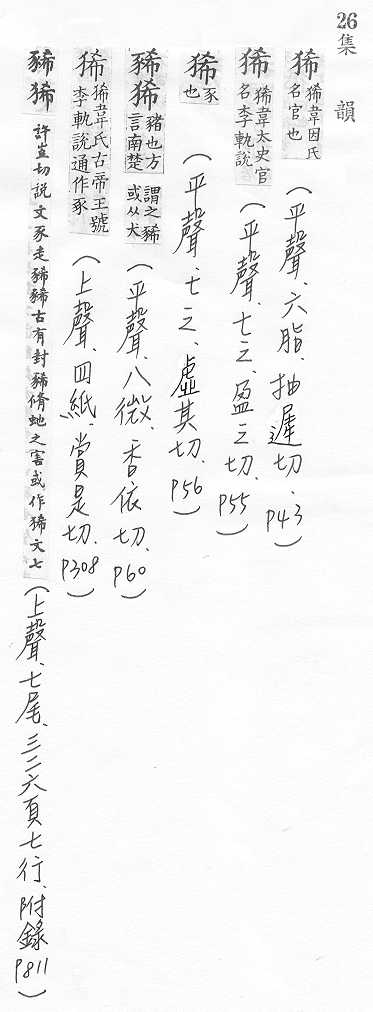 26集韻
狶 狶韋因氏名官也(平聲、六脂、抽遲切、P43)
狶 狶韋太史官名李軌說(平聲、七之、盈之切、P55)
狶 豕也(平聲、七之、虛其切、P56)
豨狶 豬也方言南楚謂之豨或从犬(平聲、八微、香依切、P60)
狶 狶韋氏古帝王號李軌說通作豕(上聲、四紙、賞是切、P308)
豨狶 許豈切說文豕走豨豨古有封豨脩虵之害或作狶文七(上聲、七尾、三二六頁七行、附錄P811)